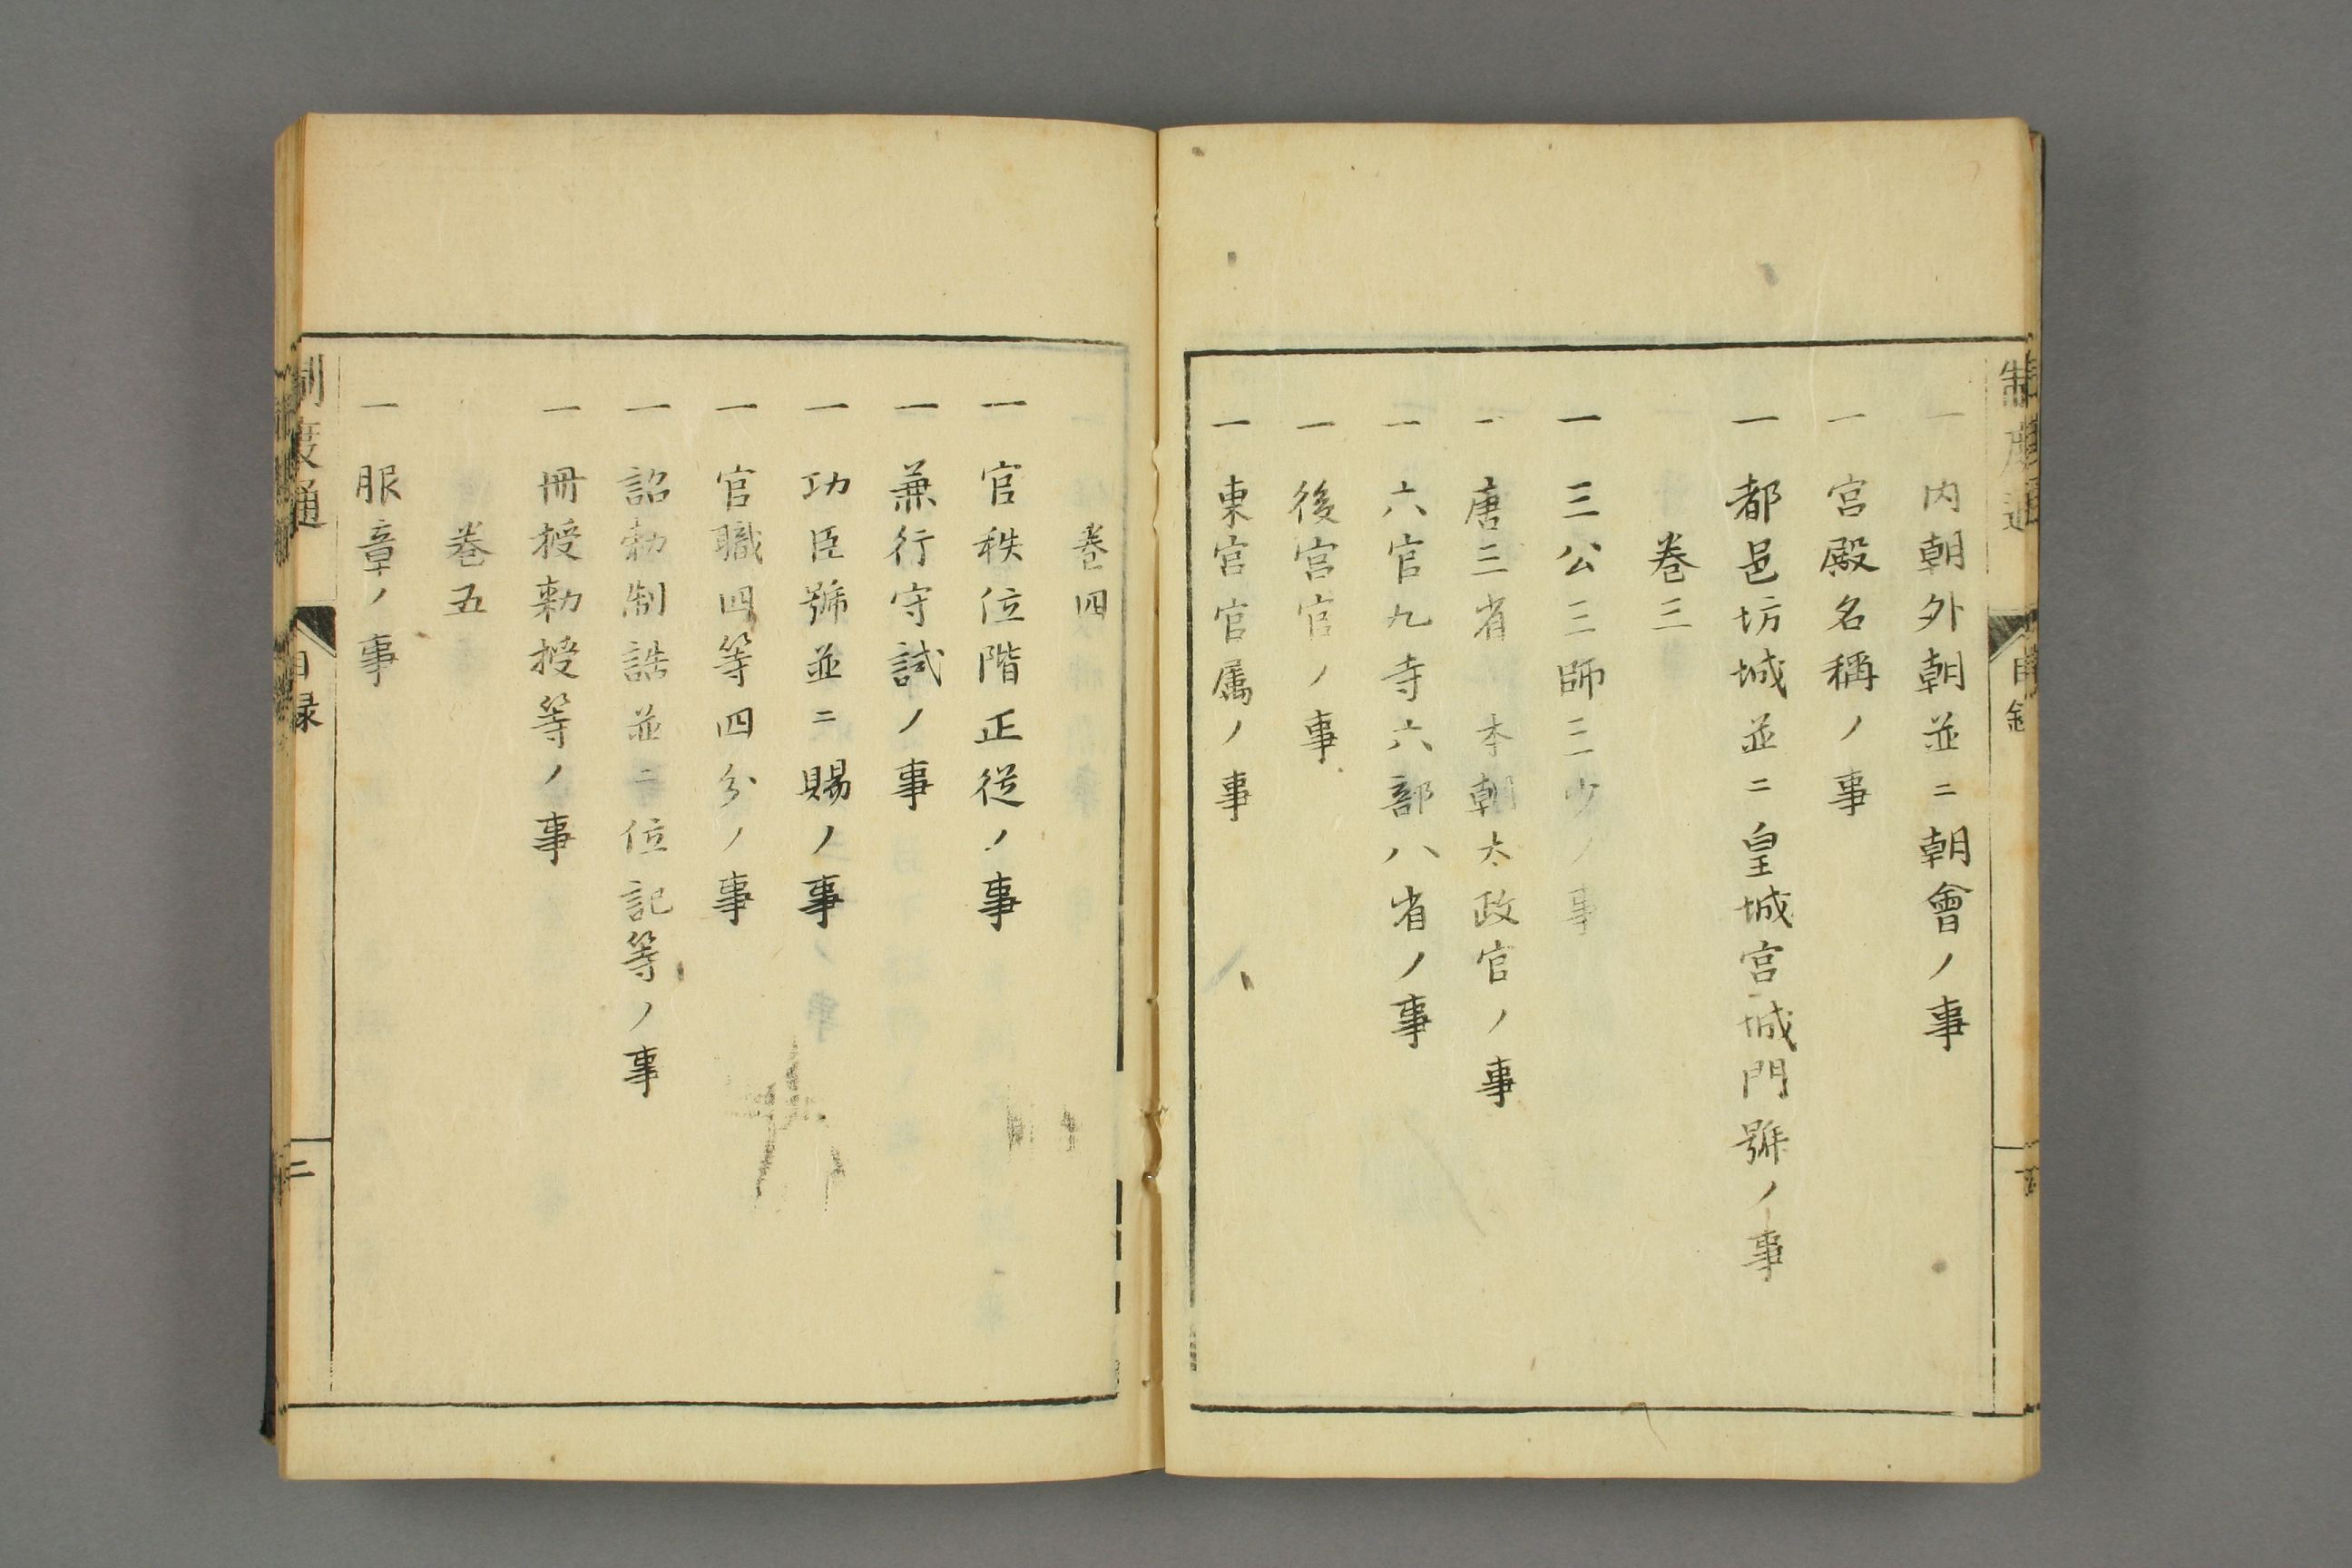 一 内朝外朝並ニ朝會ノ事
一 宮殿名稱ノ事
一 都邑坊城並ニ皇城宮城門號ノ事
巻三
一 三公三師三少ノ事
一 唐三省 本朝太政官ノ事
一 六官九寺六部八省ノ事
一 後宮官ノ事
一 東宮官属ノ事
巻四
一 官秩位階正從ノ事
一 兼行守試ノ事
一 功臣號並ニ賜ノ事
一 官職四等四分ノ事
一 詔勅制誥並ニ位記等ノ事
一 冊授勅授等ノ事
巻五
一 服章ノ事
制度通 目録 二